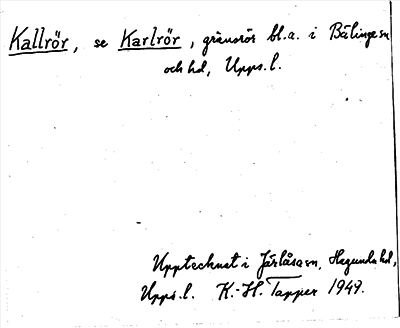 Kallrör, se Karlrör, gränsrör bl.a. i Bälinge sn
och hd, Upps.l.
Upptecknat i Järlåsa sn, Hagunda hd,
Upps.l. K.-H. Tapper 1949.